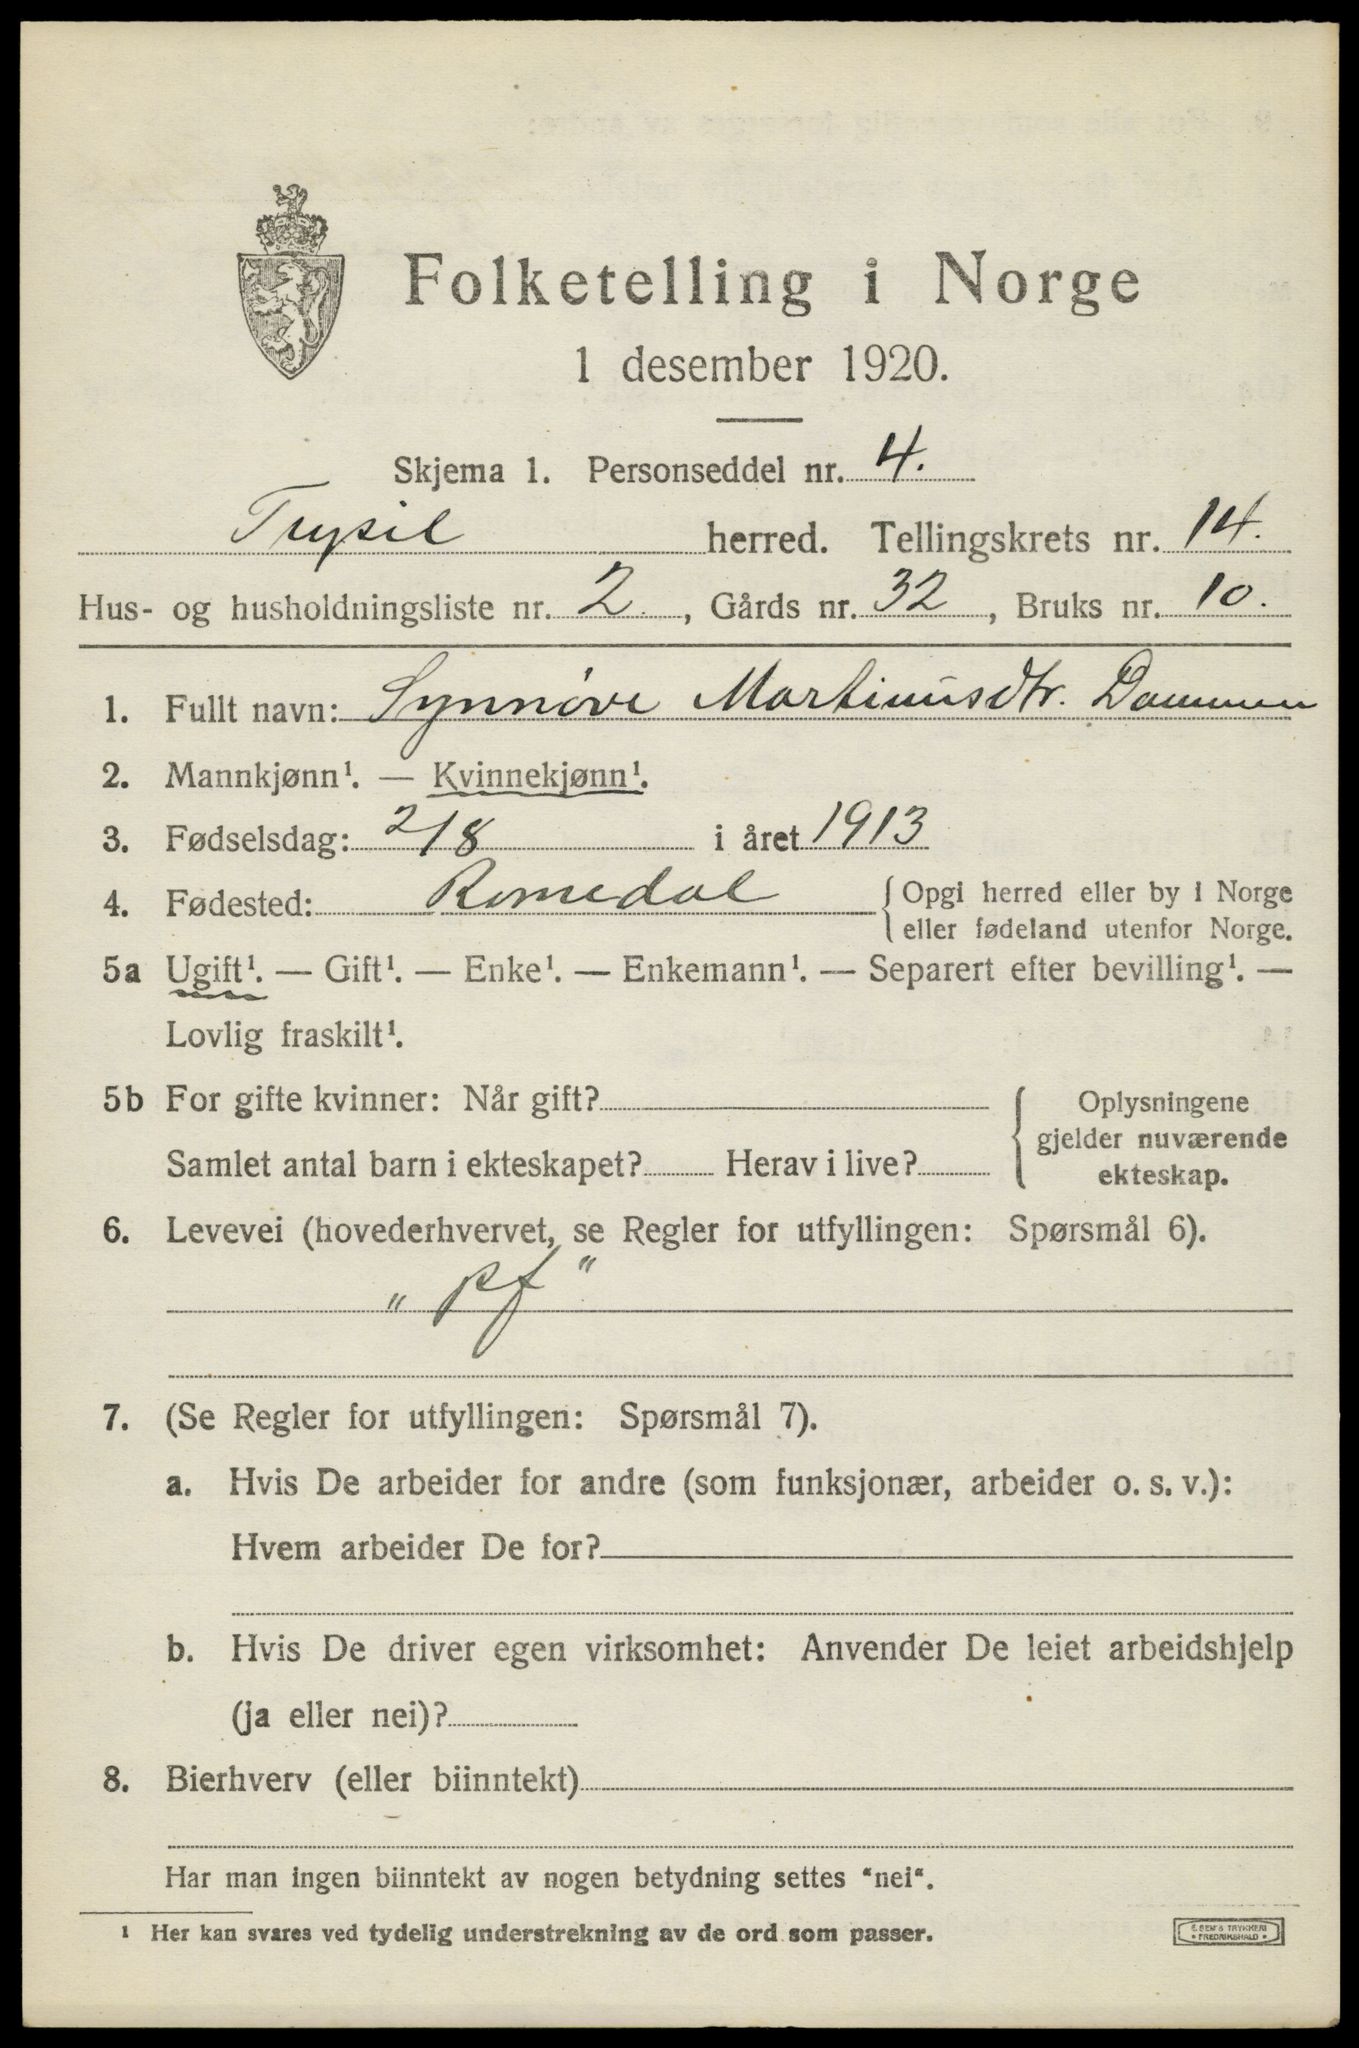 Folketelling i Norge
1 desember 1920.
Skjema 1. Personseddel nr. 4.
Trysil herred. Tellingskrets nr. 14.
Hus- og husholdningsliste nr. 2., Gårds nr. 32, Bruks nr. 10.
1. Fullt navn: Synnøve Martinusdtr. Dammen
2. Mannkjønn¹. — Kvinnekjønn¹.
3. Fødselsdag: 2/8 i året 1913
4. Fødested: Romedal { Opgi herred eller by i Norge
eller fødeland utenfor Norge.
5a Ugift¹. — Gift¹. — Enke¹. — Enkemann¹. — Separert efter bevilling¹. —
Lovlig fraskilt¹.
5b For gifte kvinner: Når gift?
Samlet antal barn i ekteskapet? Herav i live?
{ Oplysningene
gjelder nuværende
ekteskap.
6. Levevei (hovederhvervet, se Regler for utfyllingen: Spørsmål 6).
„ pf "
7. (Se Regler for utfyllingen: Spørsmål 7).
a. Hvis De arbeider for andre (som funksjonær, arbeider o. s. v.):
Hvem arbeider De for?
b. Hvis De driver egen virksomhet: Anvender De leiet arbeidshjelp
(ja eller nei)?
8. Bierhverv (eller biinntekt)
Har man ingen biinntekt av nogen betydning settes "nei".
¹ Her kan svares ved tydelig understrekning av de ord som passer.
E. SEM'S TRYKKERI
• FREDRIKSHALD •